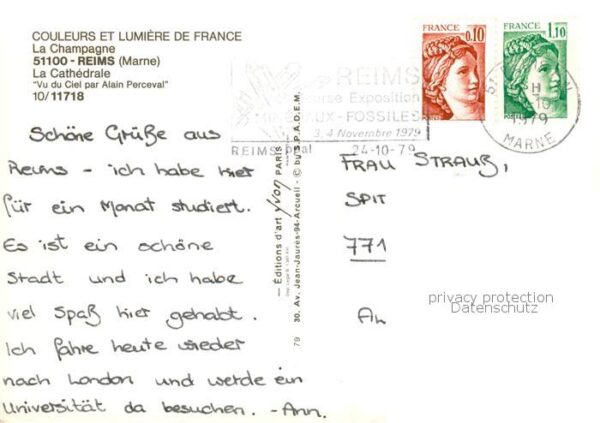 COULEURS ET LUMIÈRE DE FRANCE
La Champagne
51100 - REIMS (Marne)
La Cathédrale
"Vu du Ciel par Alain Perceval"
10/11718
FRANCE
0,10
FRANCE
1,10
REIMS
Bourse Exposition
MINÉRAUX-FOSSILES
3, 4 Novembre 1979
REIMS
24-10-79
H
1979
MARNE
Schöne Grüße aus
Reims - ich habe hier
für ein Monat studiert.
Es ist ein schöne
Stadt und ich habe
viel Spaß hier gehabt.
Ich fahre heute wieder
nach London und werde ein
Universität da besuchen. - Ann.
— Éditions d'art yvon PARIS —
79 30. Av. Jean-Jaurès-94-Arcueil - © by S.P.A.D.E.M.
FRAU STRAUß,
SPIT
771
privacy protection
Datenschutz